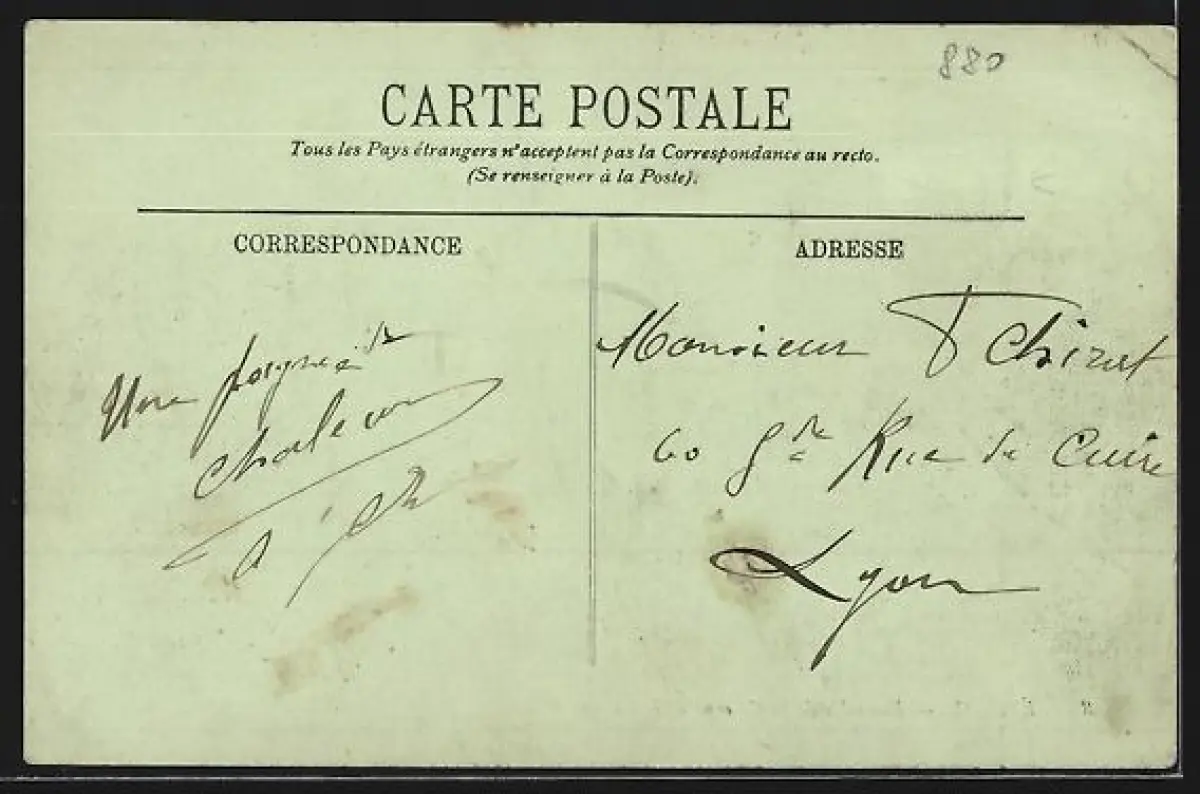 880
CARTE POSTALE
Tous les Pays étrangers n'acceptent pas la Correspondance au recto.
(Se renseigner à la Poste).
CORRESPONDANCE
ADRESSE
Une poignée
Monsieur
60 Gde Rue de Cuire
Lyon